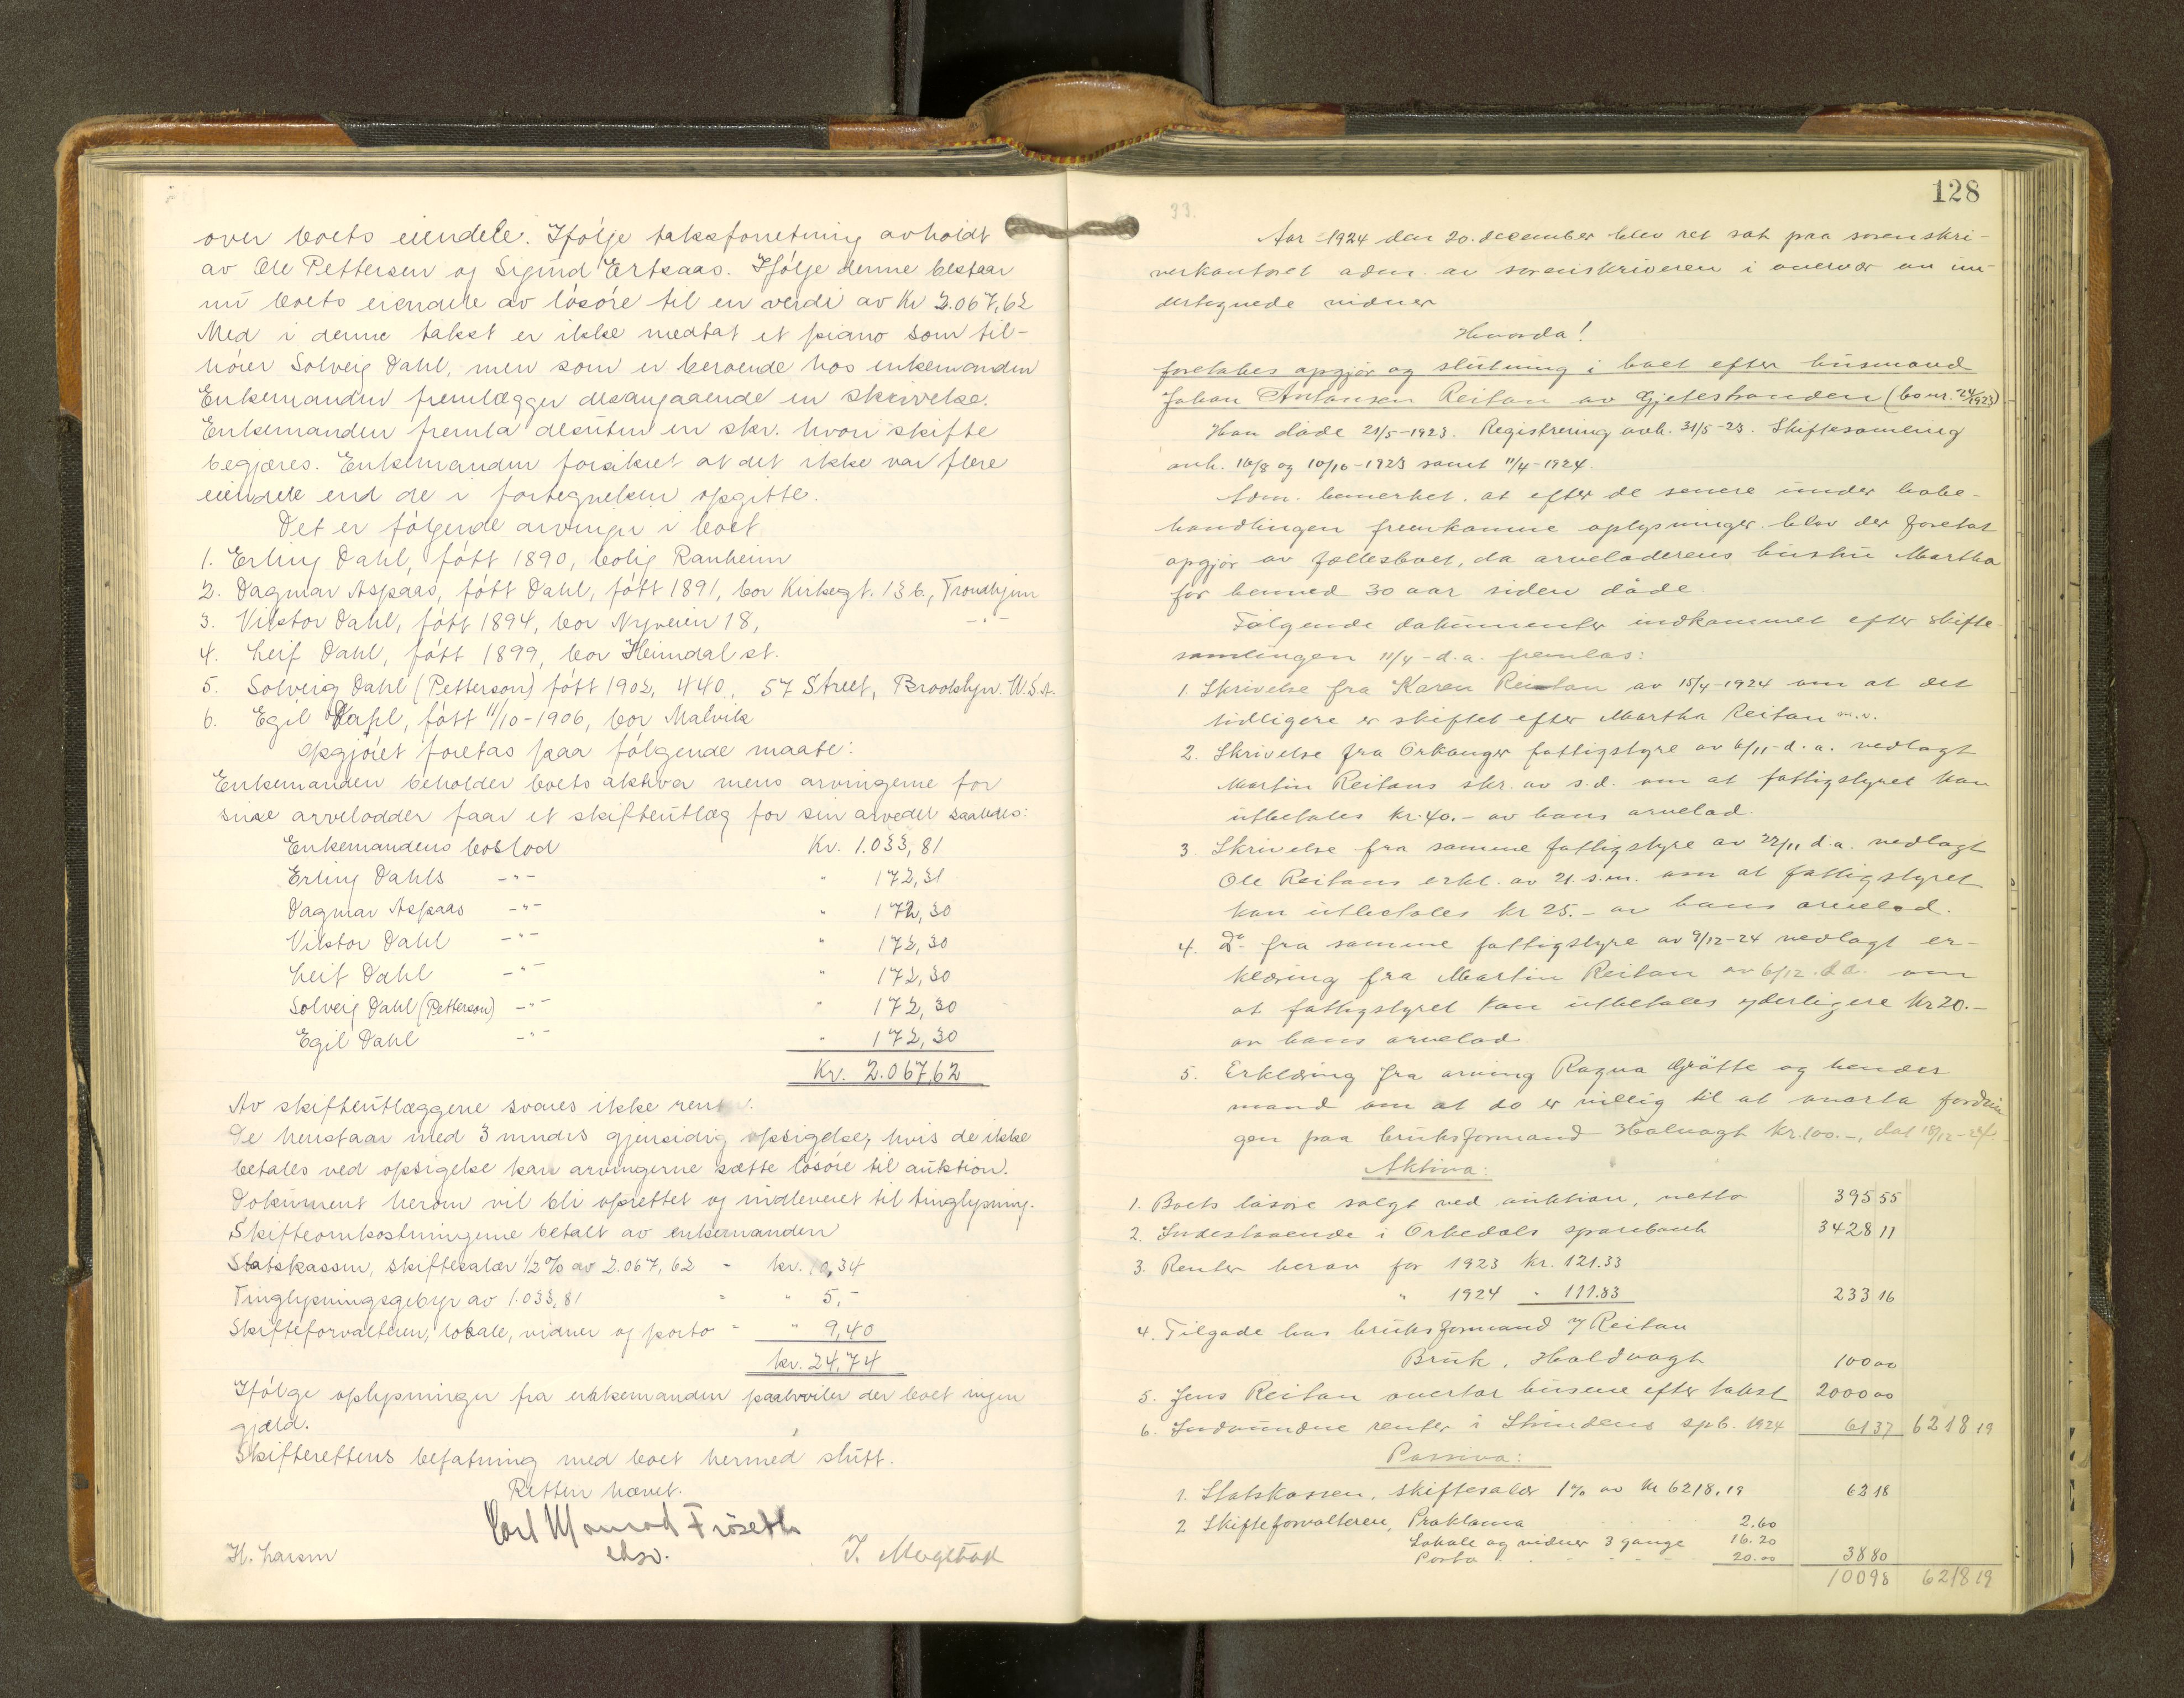 over boets eiendele. Ifølge taksforretning avholdt
av Ole Pettersen og Sigurd Ertsaas. Ifølge denne bestaar
nu boets eiendele av løsøre til en verdi av Kr 2.067,62
Med i denne takst er ikke medtat et piano som til-
hører Solveig Dahl, men som er beroende hos enkemanden
Enkemanden fremlægger desangaaende en skrivelse.
Enkemanden fremla desuten en skr. hvori skifte
begjæres. Enkemanden forsikret at det ikke var flere
eiendele end de i fortegnelsen opgitte.
Det er følgende arvinger i boet
1. Erling Dahl, født 1890, bolig Ranheim
2. Dagmar Aspaas, født Dahl, født 1891, bor Kirkegt. 13 b, Trondhjem
3. Viktor Dahl, født 1894, bor Nyveien 18, -"-
4. Leif Dahl, født 1899, bor Heimdal st.
5. Solveig Dahl (Petterson) født 1902, 440, 57 Street, Brooklyn. U.S.A.
6. Egil Dahl, født 11/10-1906, bor Malvik
Opgjøret foretas paa følgende maate:
Enkemanden beholder boets aktiva mens arvingerne for
sine arvelodder faar et skifteutlæg for sin arvedel saaledes:
Enkemandens boslod Kr. 1.033,81
Erling Dahls -"- " 172,31
Dagmar Aspaas -"- " 172,30
Viktor Dahl -"- " 172,30
Leif Dahl -"- " 172,30
Solveig Dahl (Petterson) -"- " 172,30
Egil Dahl -"- " 172,30
Kr. 2.067,62
Av skifteutlæggene svares ikke rent
De henstaar med 3 mndrs gjensidig opsigelse, hvis de ikke
betales ved opsigelse kan arvingerne sætte løsøre til auktion.
Dokument herom vil bli oprettet og indleveret til tinglysning.
Skifteomkostningerne betalt av enkemanden
Statskassen, skiftesalær 1/2 % av 2.067,62 - kr. 10,34
Tinglysningsgebyr av 1.033,81 " " 5,-
Skifteforvalteren, lokale, vidner og porto - " 9,40
kr. 24,74
Ifølge oplysninger fra enkemanden paahviler der boet ingen
gjæld.
Skifterettens befatning med boet hermed slutt.
Retten hævet.
Carl Monrad Frøseth
H. Larsen J. Mogstad
128
33.
Aar 1924 den 20. december blev ret sat paa sorenskri-
verkontoret adm. av sorenskriveren i overvær av un-
dertegnede vidner
Hvorda!
foretokes opgjør og slutning i boet efter husmand
Johan Antonsen Reitan av Gjetestranden (bo nr. 24/1923)
Han døde 21/5-1923. Registrering avh. 31/5-23. Skiftesamling
avh. 16/8 og 10/10-1923 samt 11/4-1924.
Adm. bemerket, at efter de senere under bobe-
handlingen fremkomne oplysninger blev der foretat
opgjør av fællesboet, da arveladerens hustru Martha
for henved 30 aar siden døde.
Følgende dokumenter indkommet efter skifte-
samlingen 11/4-d.a. fremlaes:
1. Skrivelse fra Karen Reitan av 15/4-1924 om at det
tidligere er skiftet efter Martha Reitan m.v.
2. Skrivelse fra Orkanger fattigstyre av 6/11-d.a. vedlagt
Martin Reitans skr. av s.d. om at fattigstyret kan
utbetales kr. 40.- av hans arvelod.
3. Skrivelse fra samme fattigstyre av 22/11 d.a. vedlagt
Ole Reitans erkl. av 21. s.m. om at fattigstyret
kan utbetales kr 25.- av hans arvelod.
4. Do. fra samme fattigstyre av 9/12-24 vedlagt er-
klæring fra Martin Reitan av 6/12. d.a. om
at fattigstyret kan utbetales yderligere kr 20.-
av hans arvelod.
5. Erklæring fra arving Ragna Grøtte og hendes
mand om at de er villig til at overta fordrin
gen paa bruksformand Holvagt kr. 100.-, dat 18/12-24.
Aktiva:
1. Boets løsøre solgt ved auktion, netto 395 55
2. Indestaaende i Orkedals sparebank 3428 11
3. Renter herav for 1923 kr. 121.33
" 1924 " 111.83 233 16
4. Tilgode hos bruksformand
Bruk, Holdvagt 100 00
5. Jens Reitan overtar husene efter takst 2000 00
6. Indvundne renter i Strindens spb. 1924 61 37 6218 19
Passiva:
1. Statskassen, skiftesalær 1% av kr 6218,19 62 18
2 Skifteforvalteren, Proklama 2.60
Lokale og vidner 3 gange 16.20
Porto 20.00 38 80
100 98 6218 19